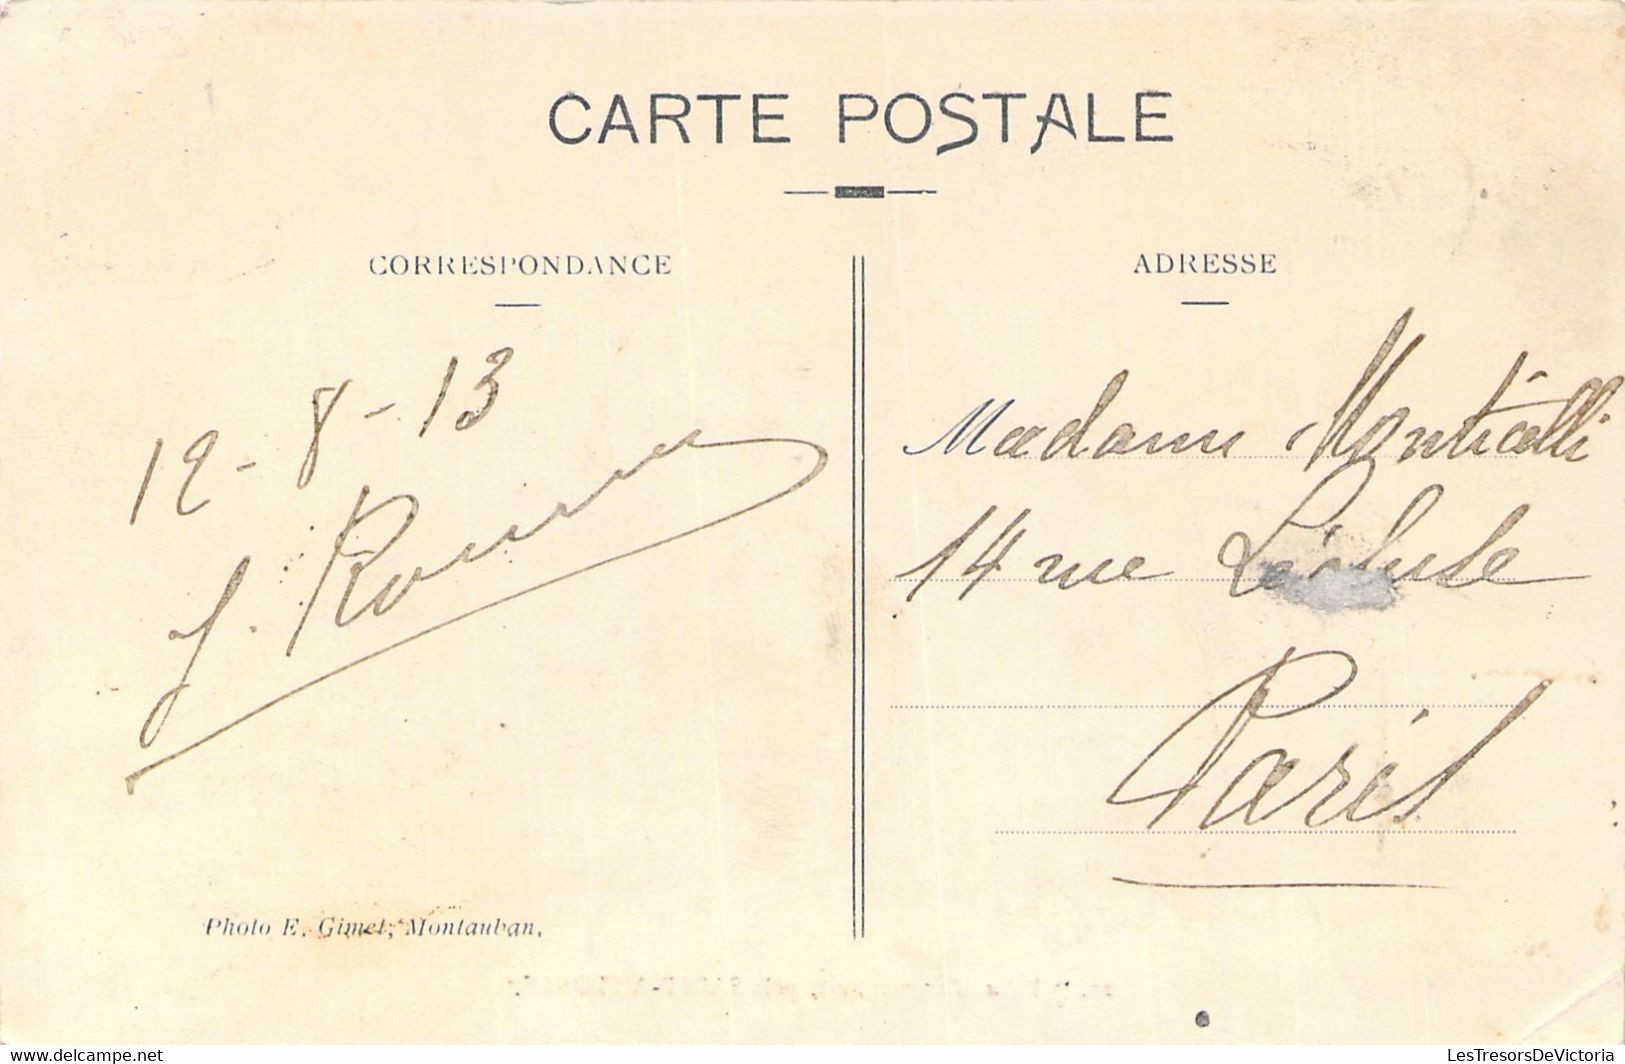 CARTE POSTALE
CORRESPONDANCE
ADRESSE
12-8-13
J.
Madame Monticelli
14 rue Lécluse
Paris
Photo E. Gimet, Montauban.
LesTresorsDeVictoria
delcampe.net